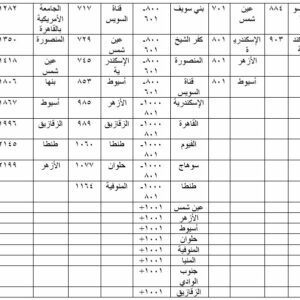 سو ٨٨٤ عين ٧٠١ بني سويف ٨٠٠- قناة ٧١٧ الجامعة ١٢٨٢
شمس ٦٠١ السويس الأمريكية
بالقاهرة
كند ٩٠٣ الإسكندري كفر الشيخ ٨٠٠- عين ٧٢٩ المنصورة ١٣٥٠
ة ٦٠١ شمس
الأزهر المنصورة ٨٠٠- الإسكندر ٧٤٥ عين ١٤١٨
٦٠١ ية شمس
أسيوط ٨٠١ قناة ٨٠٠- أسيوط ٨٥٣ بنها ١٨٠٦
السويس ٦٠١
الإسكندرية ١٠٠٠- الأزهر أسيوط ١٨٦٧
٨٠١
القاهرة ١٠٠٠- الزقازيق ٩٨٥ الزقازيق ١٩٩٦
٨٠١
الفيوم ١٠٠٠- طنطا ١٠٦٠ طنطا ٢١٤٥
٨٠١
سوهاج ١٠٠٠- حلوان ١٠٧٧ الأزهر ٢١٩٩
٨٠١
طنطا ١٠٠٠- المنوفية ١١٦٤
٨٠١
عين شمس ١٠٠١+
الأزهر ١٠٠١+
أسيوط ١٠٠١+
حلوان ١٠٠١+
المنوفية ١٠٠١+
المنيا ١٠٠١+
جنوب ١٠٠١+
الوادي
الزقازيق ١٠٠١+